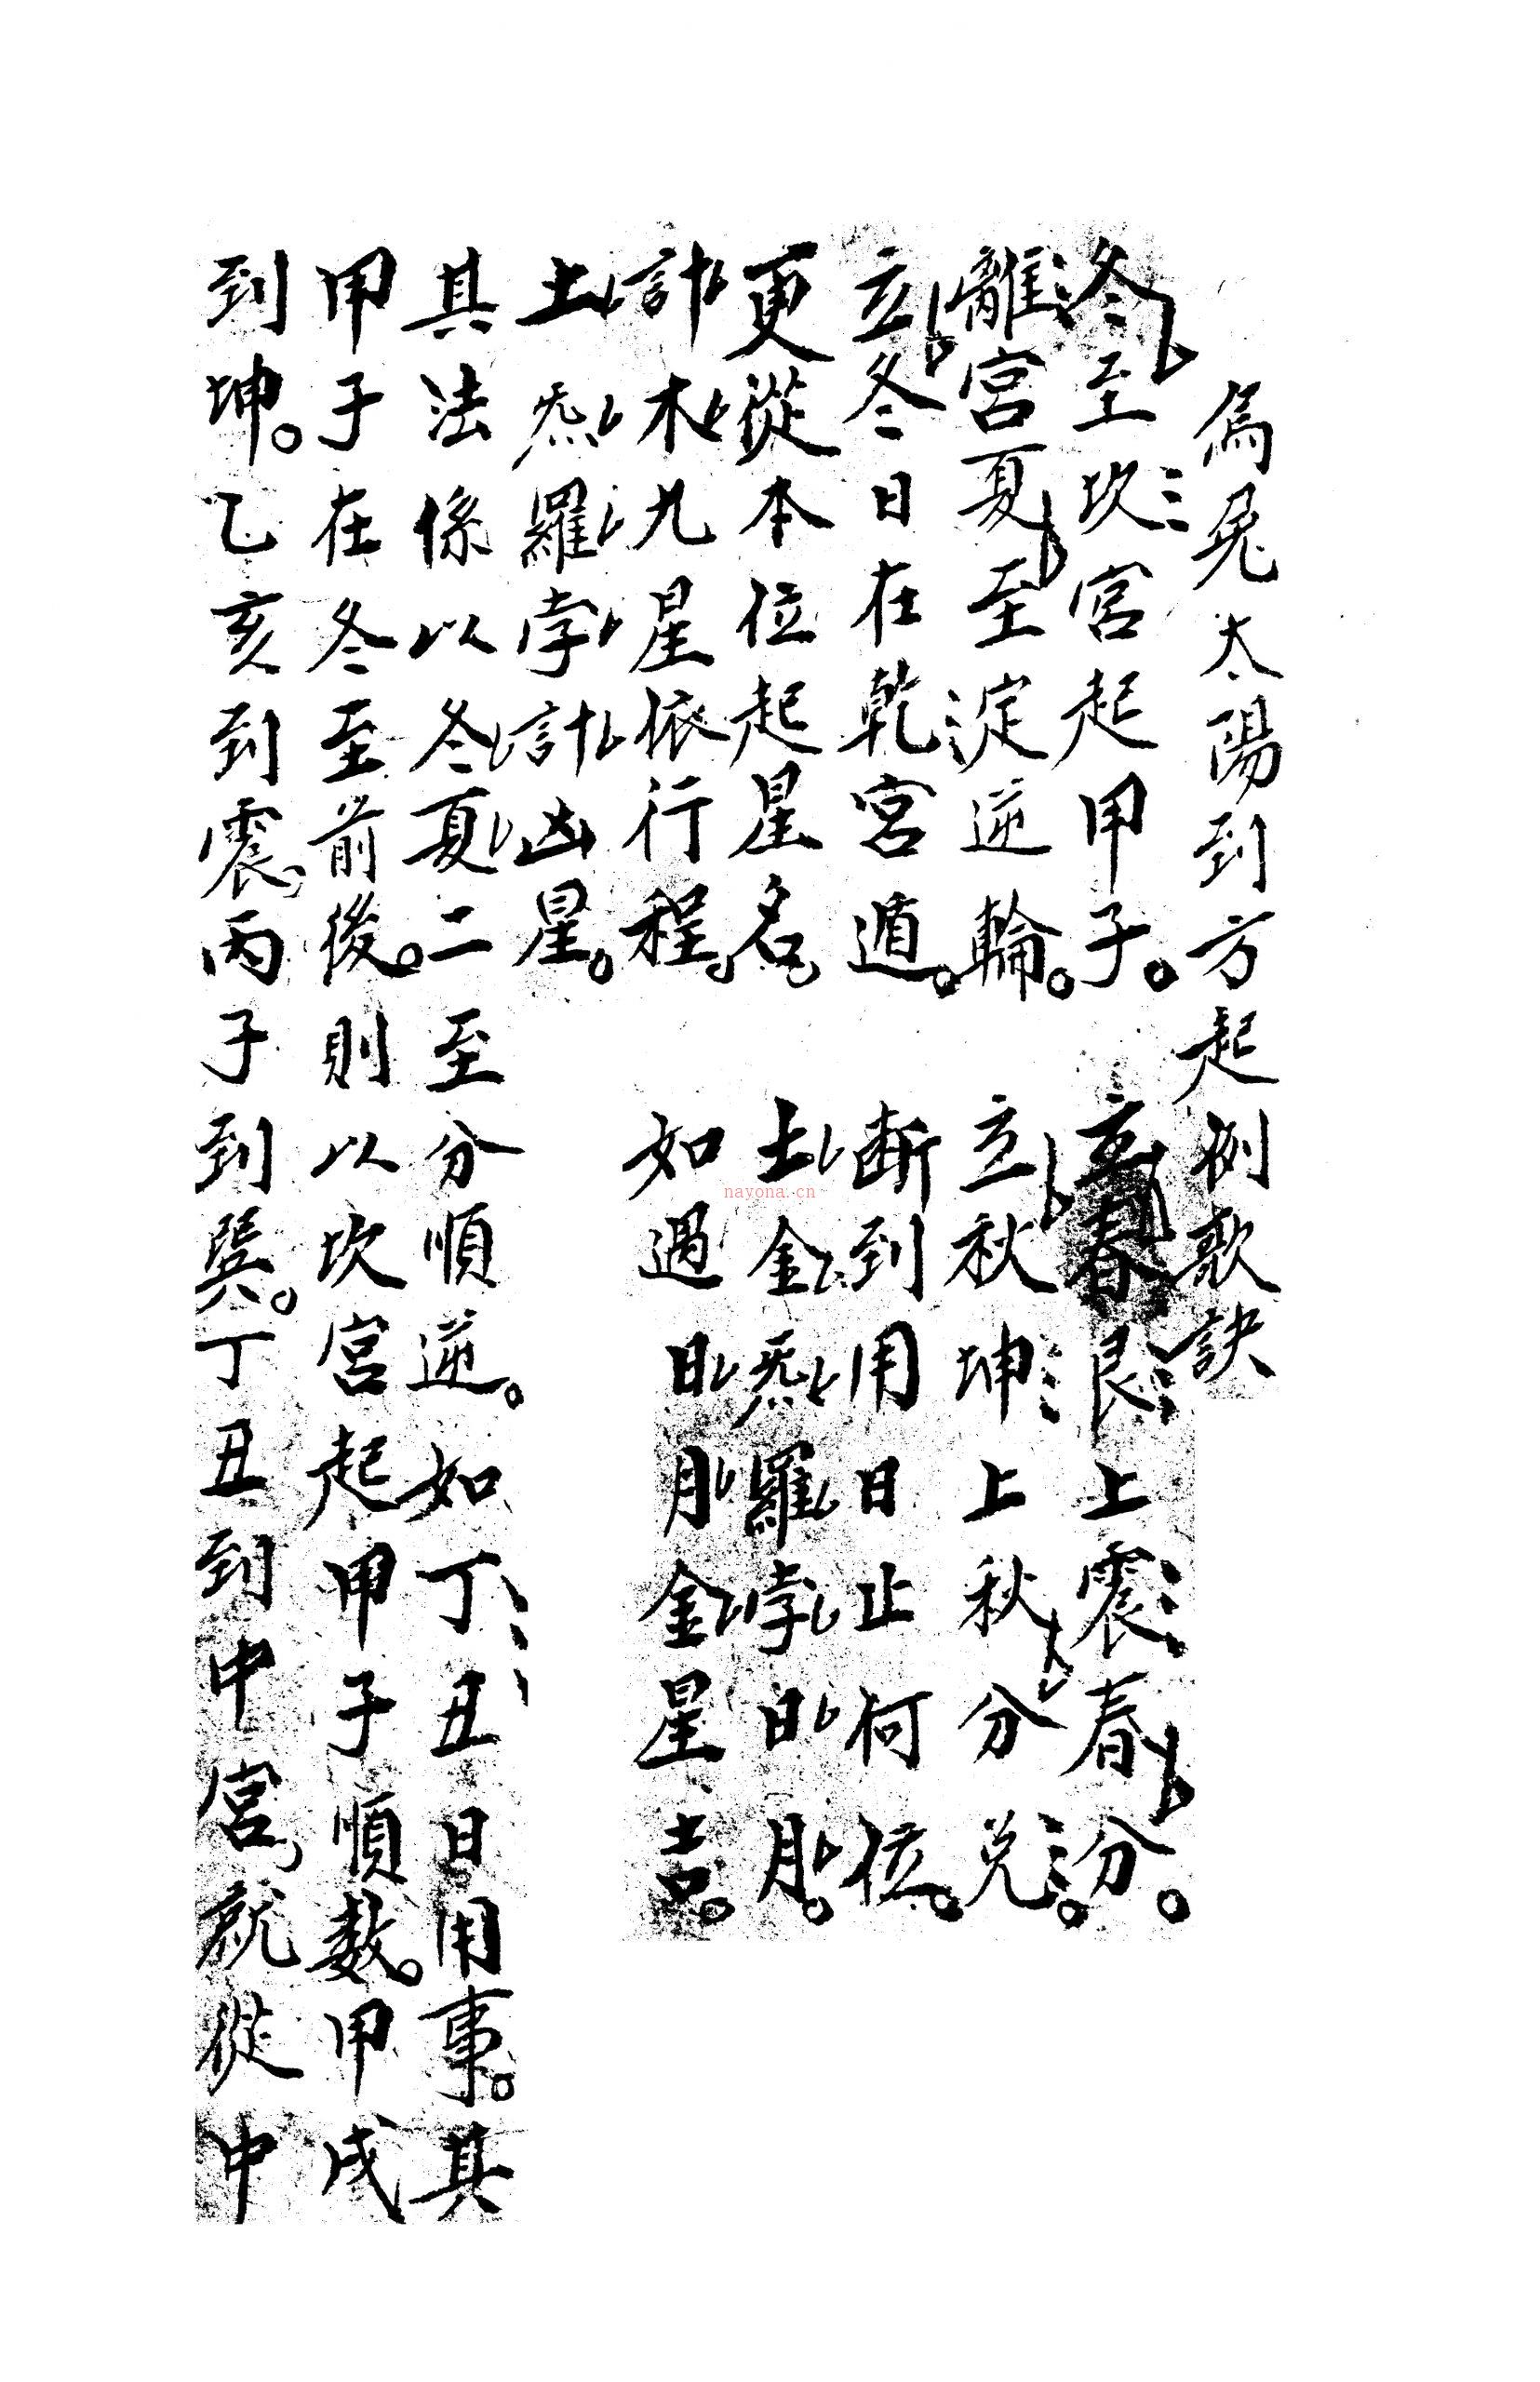 烏兎太陽到方起例歌訣
冬至坎宮起甲子。立春艮上震春分。
離宮夏至逆輪。立秋坤上秋分兌。
立冬日在乾宮遁。斷到用日止何位。
更從本位起星名。土金炁羅孛日月。
計木九星依行程。如遇日月金星吉。
土炁羅孛計凶星。
其法係以冬夏二至分順逆。如丁丑日用事。其
甲子在冬至前後。則以坎宮起甲子順数。甲戌
到坤。乙亥到震。丙子到巽。丁丑到中宮。就從中
nayona.cn